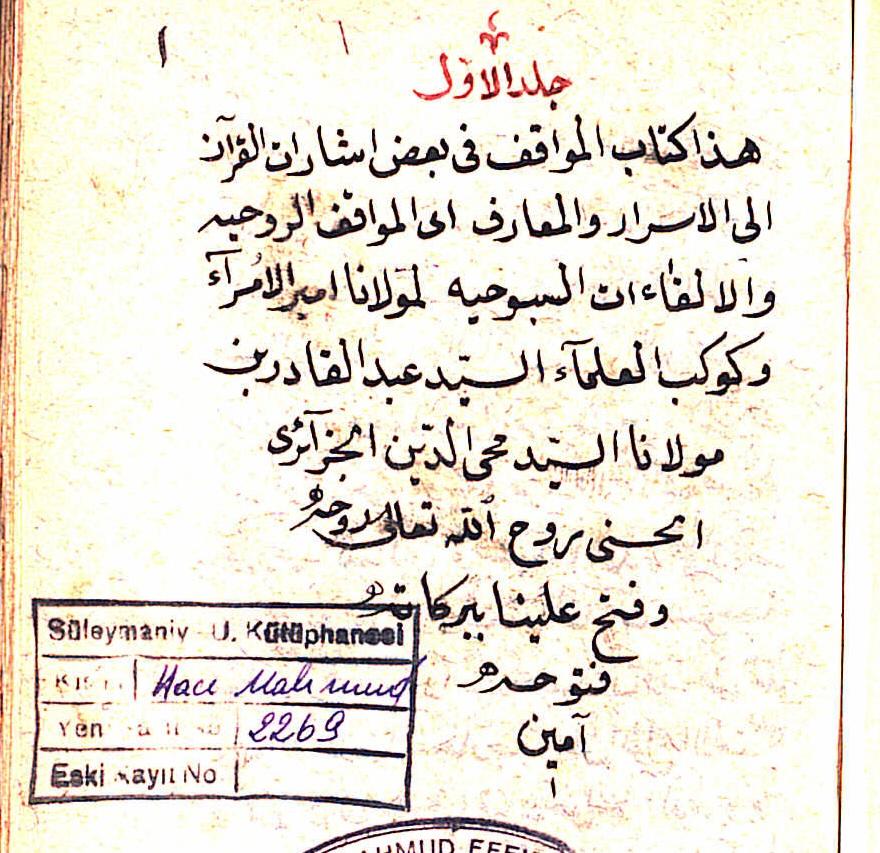 ١
جلد الاوّل
هذا كتاب المواقف فى بعض اشارات القرآن
الى الاسرار والمعارف اى المواقف الروحيه
والالقاءات السبوحيه لمولانا امير الامرآء
وكوكب العلمآء السيّد عبد القادر بن
مولانا السيّد محى الدّين الجزآئرى
الحسنى روح الله تعالى روحه
وفتح علينا ببركاته
فتوحه
آمين
Süleymaniy U. Kütüphanesi
Hacı Mahmud
Yeni 2269
Eski Kayıt No
MAHMUD EFE